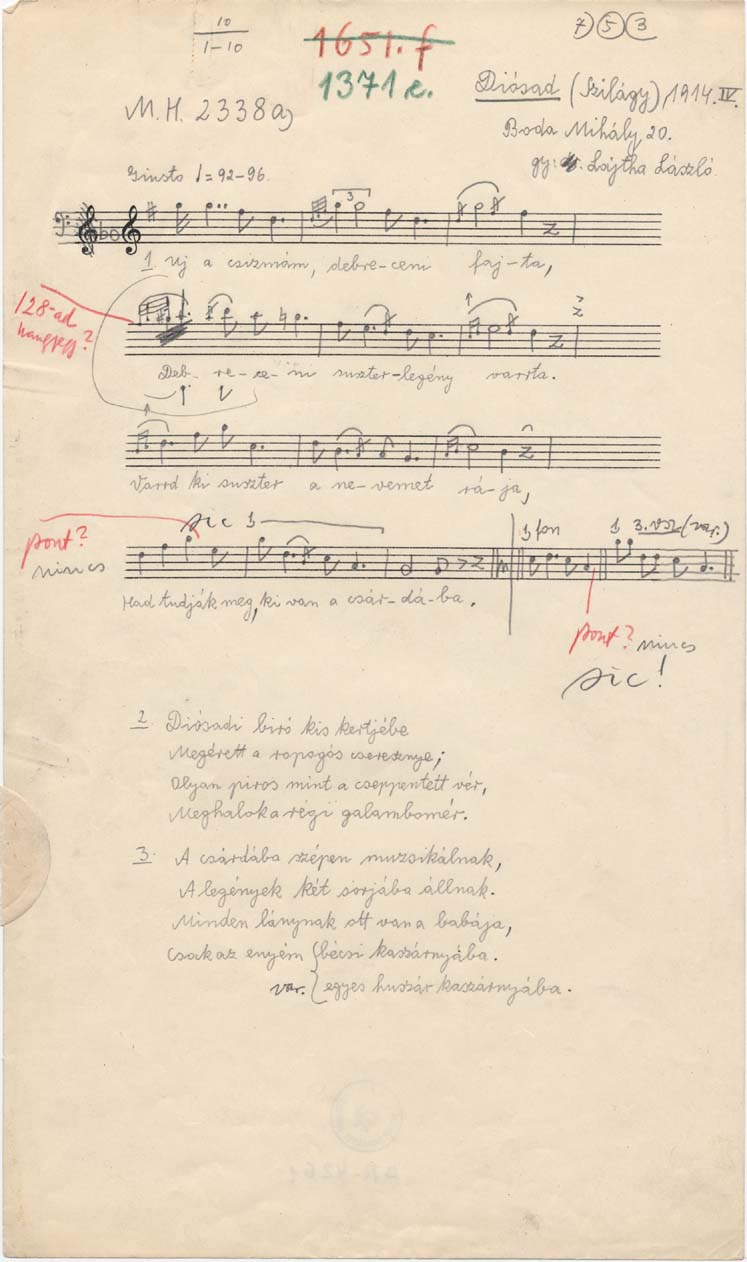 10
1-10
1651. f
1371 e.
7) 5 3
Diósad (Szilágy), 1914. IV.
Boda Mihály, 20.
gy: Lajtha László.
M.H. 2338a)
Giusto = 92-96.
3
1 Uj a csizmám, debre-ceni faj-ta,
128-ad
hangjegy?
Deb- re-ce-ni suszter-legény varrta.
Varrd ki suszter a ne-vemet rá-ja,
sic
pont?
nincs
1 fon
1 3. vsz (var.)
Had tudják meg, ki van a csár-dá-ba.
pont? nincs
sic!
2. Diósadi biró kis kertjébe
Megérett a ropogós cseresznye;
Olyan piros mint a cseppentett vér,
Meghalok a régi galambomér.
3. A csárdába szépen muzsikálnak,
A legények két sorjába állnak.
Minden lánynak ott van a babája,
Csak az enyém {bécsi kaszárnyába.
var. {egyes huszár kaszárnyába.